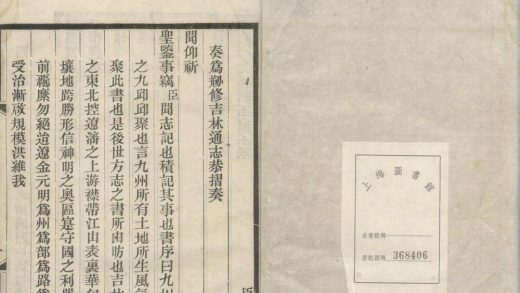 奏爲剏修吉林通志恭摺奏
聞仰祈
聖鑒事竊臣聞志記也積記其事也書序曰九州
之九邱邱聚也言九州所有土地所生風氣
聚此書也是後世方志之書所由昉也吉林
之東北控遼瀋之上游襟帶江山表裏華
壤地跨勝形信神明之奧區寔守國之利
前羈縻勿絕迨遼金元明爲州爲部爲路爲
受治漸啟規模洪維我
臣
上海圖書館
索書號碼
登記號碼 368406